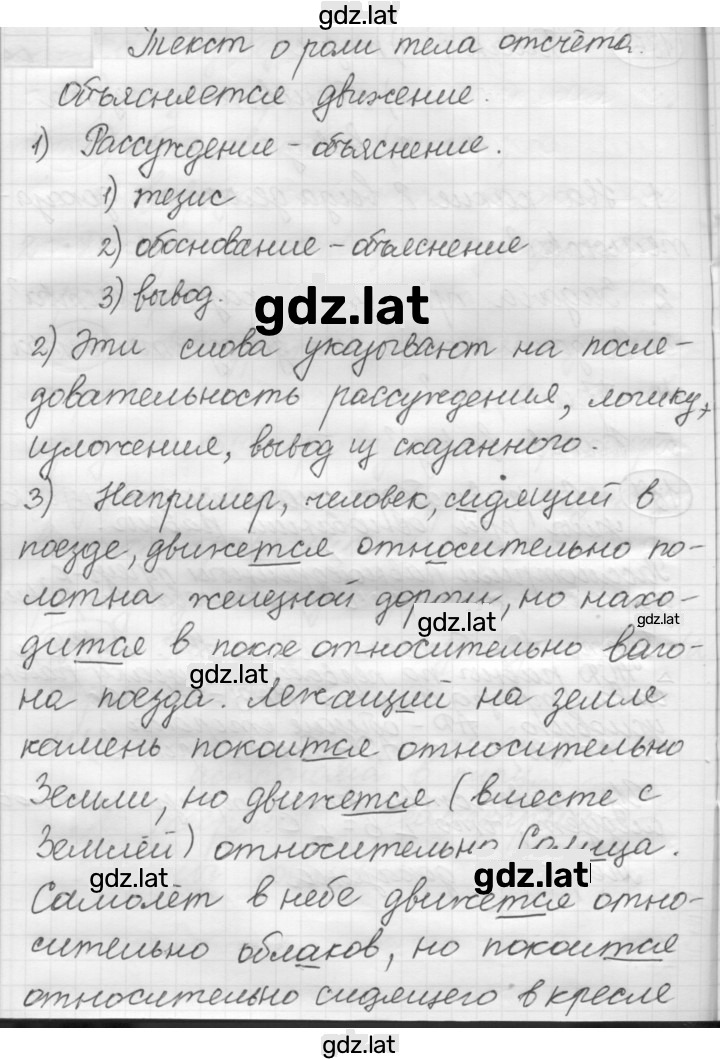 gdz.lat
Текст о роли тела отсчёта.
Объясняется движение.
1) Рассуждение - объяснение.
1) тезис
2) обоснование - объяснение
3) вывод.
gdz.lat
2) Эти слова указывают на после-
довательность рассуждения, логику,
изложения, вывод из сказанного.
3) Например, человек, сидящий в
поезде, движется относительно по-
лотна железной дороги, но нахо-
gdz.lat
gdz.lat
дится в покое относительно ваго-
gdz.lat
на поезда. Лежащий на земле
камень покоится относительно
Земли, но движется (вместе с
Землёй) относительно Солнца.
gdz.lat
gdz.lat
Самолёт в небе движется отно-
сительно облаков, но покоится
относительно сидящего в кресле
gdz.lat